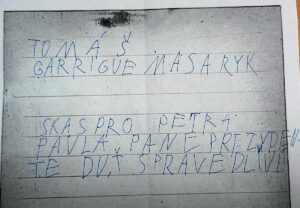 TOMÁŠ
GARRIGUE MASARYK
SKAS PRO PETRA
PAVLA PANE PREZYDEN
TE DUŤ SPRAVEDLIVÍ